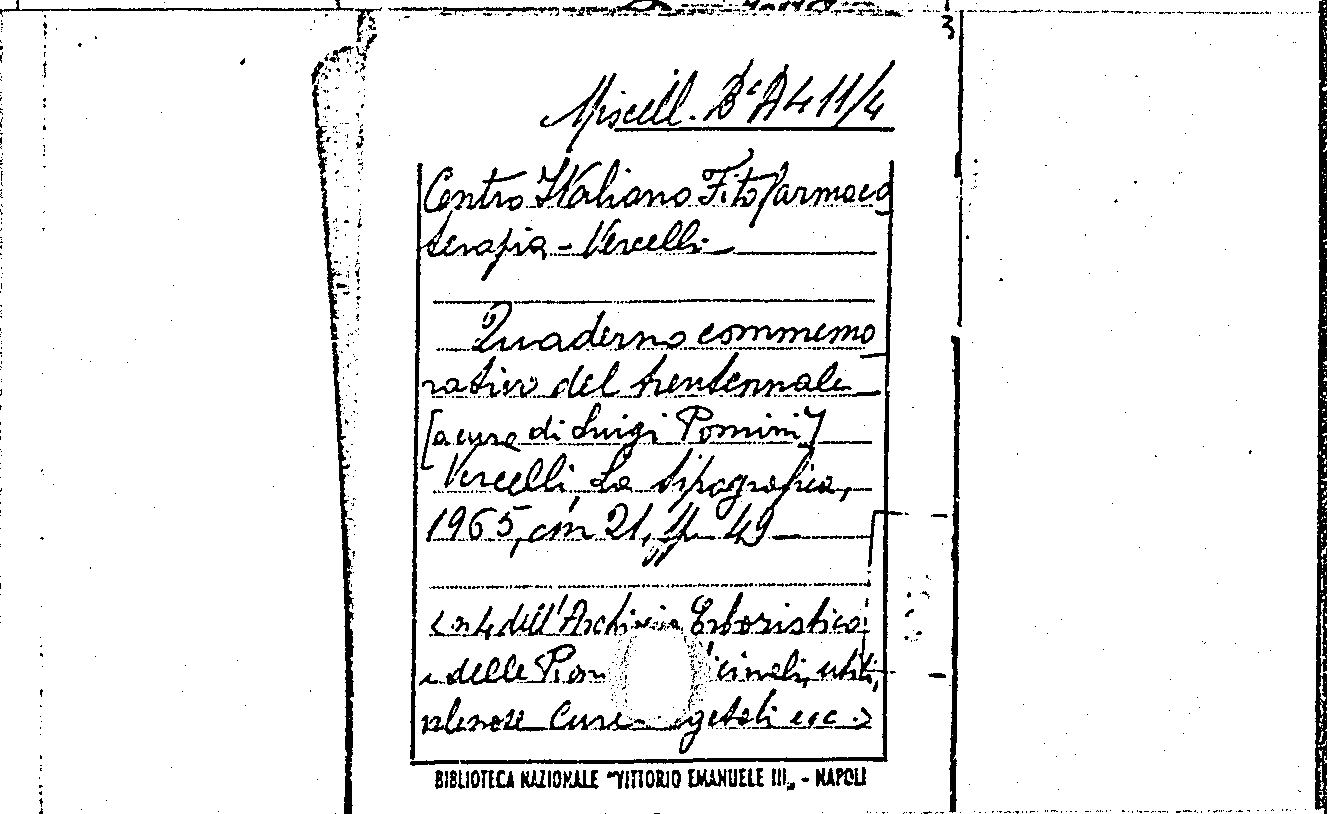 3
Miscell. B°A 411/4
Centro Italiano Fitofarmaco
terapia - Vercelli
Quaderno commemo
rativo del trentennale
[a cura di Luigi Pomini]
Vercelli, La tipografica,
1965, cm 21, pp 49
dell'Archivio Erboristico
e delle utili,
velenose Cure esc >
BIBLIOTECA NAZIONALE "VITTORIO EMANUELE III„ - NAPOLI